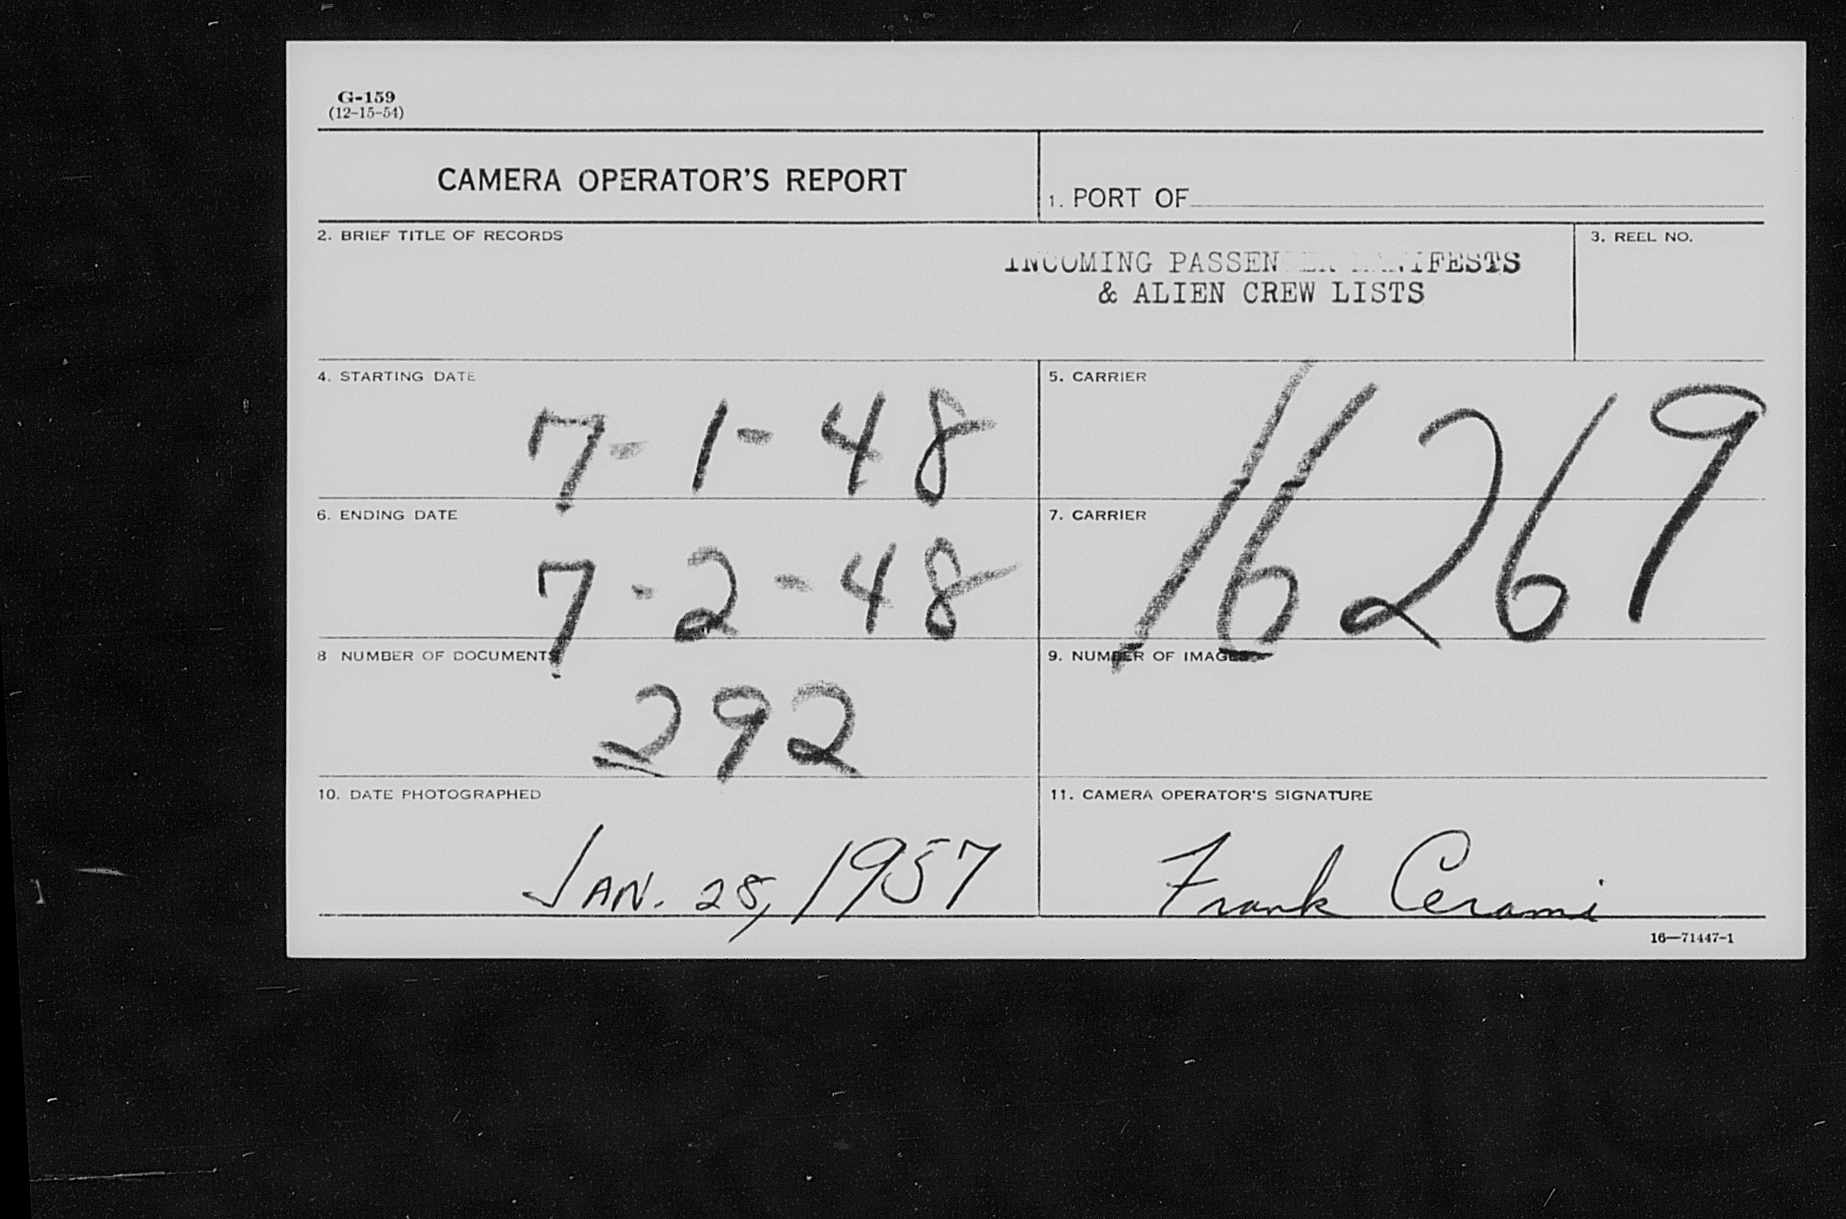 G-159
(12-15-54)
CAMERA OPERATOR'S REPORT
1. PORT OF
2. BRIEF TITLE OF RECORDS
INCOMING PASSENGER MANIFESTS
& ALIEN CREW LISTS
3. REEL NO.
4. STARTING DATE
7-1-48
5. CARRIER
16269
6. ENDING DATE
7-2-48
7. CARRIER
8 NUMBER OF DOCUMENTS
292
9. NUMBER OF IMAGES
10. DATE PHOTOGRAPHED
JAN. 28, 1957
11. CAMERA OPERATOR'S SIGNATURE
Frank Cerami
16—71447-1